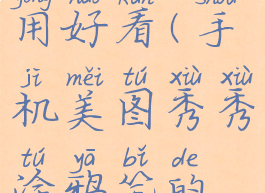 yòng hǎo kàn shǒu
用好看(手
jī měi tú xiù xiù
机美图秀秀
tú yā bǐ de
涂鸦笔的